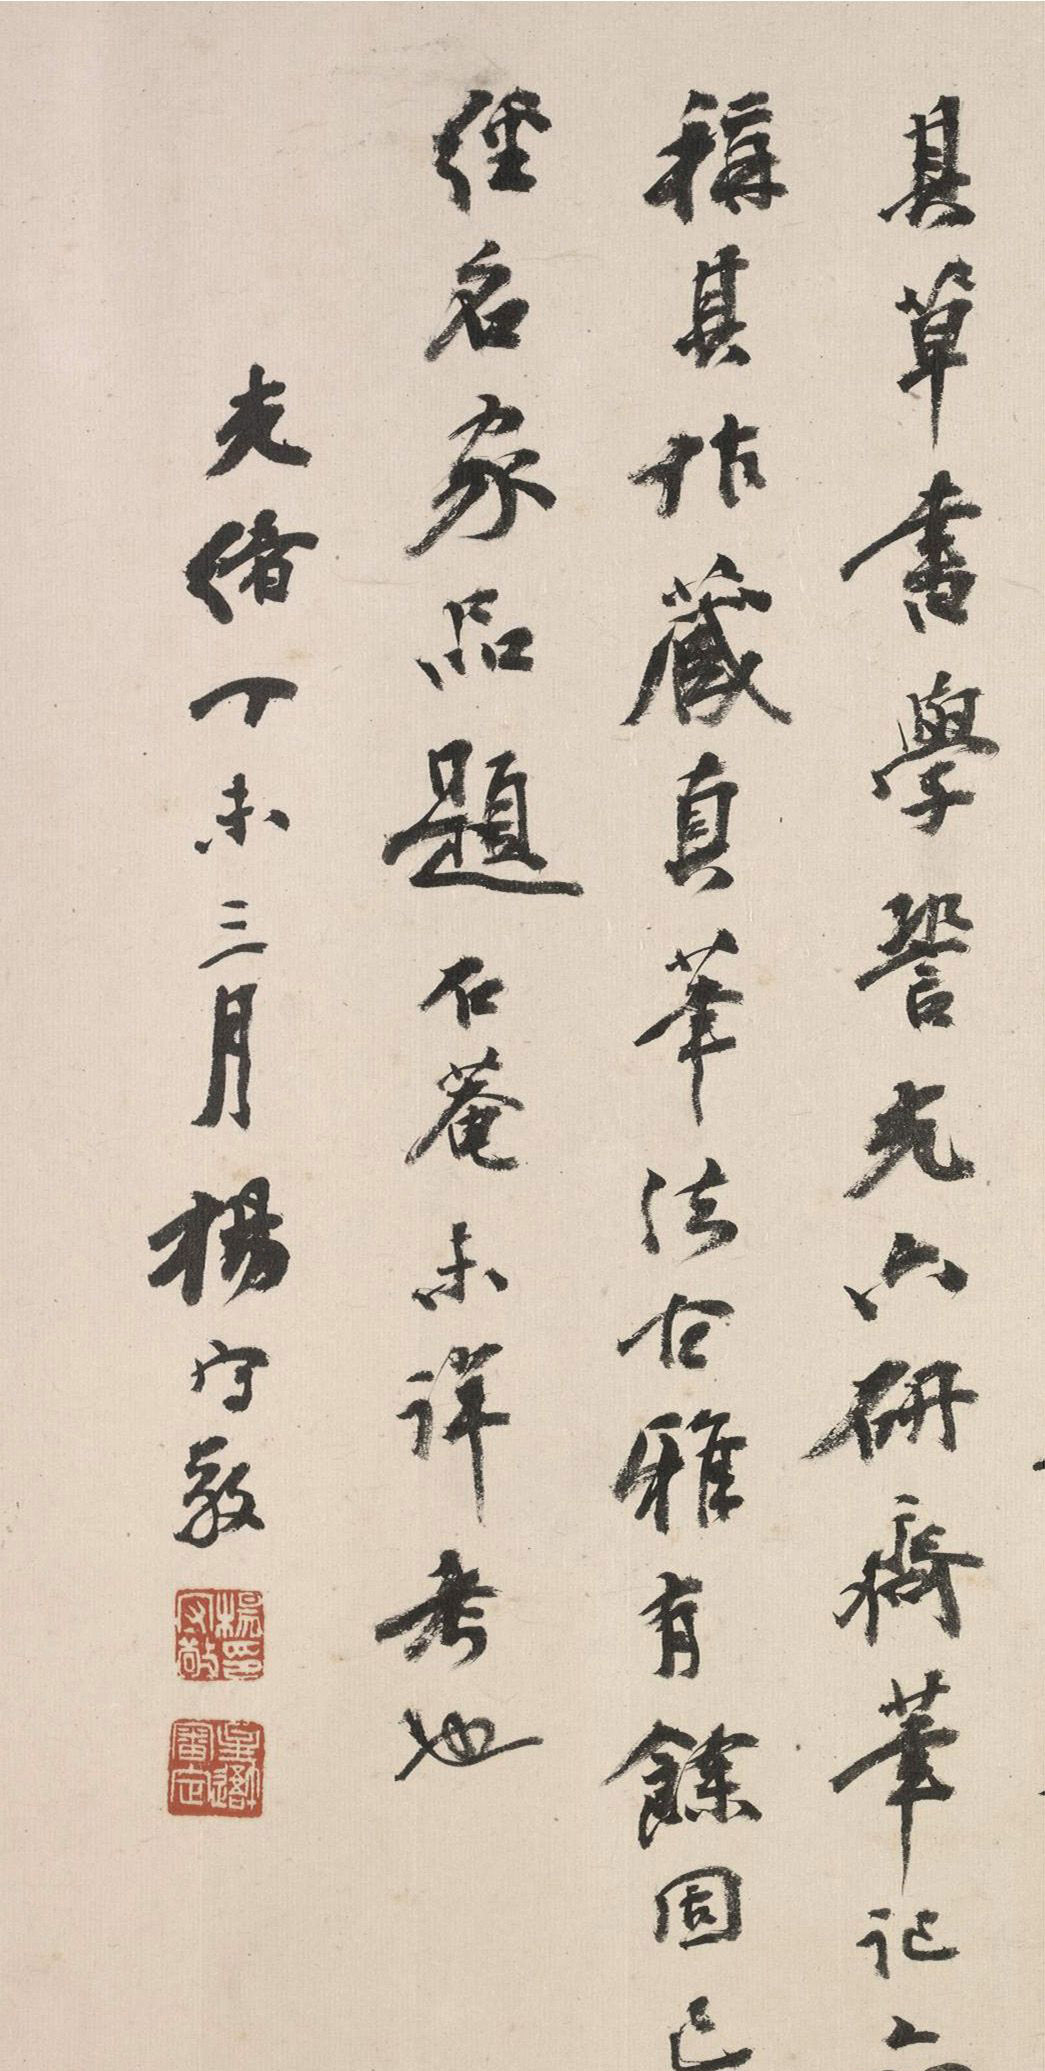 其草書學訔光六研齋筆記
稱其怗藏真筆法古雅有餘固已
經名家品題石菴未詳考也
光緒丁未三月楊守敬
楊守敬印
星吾審定